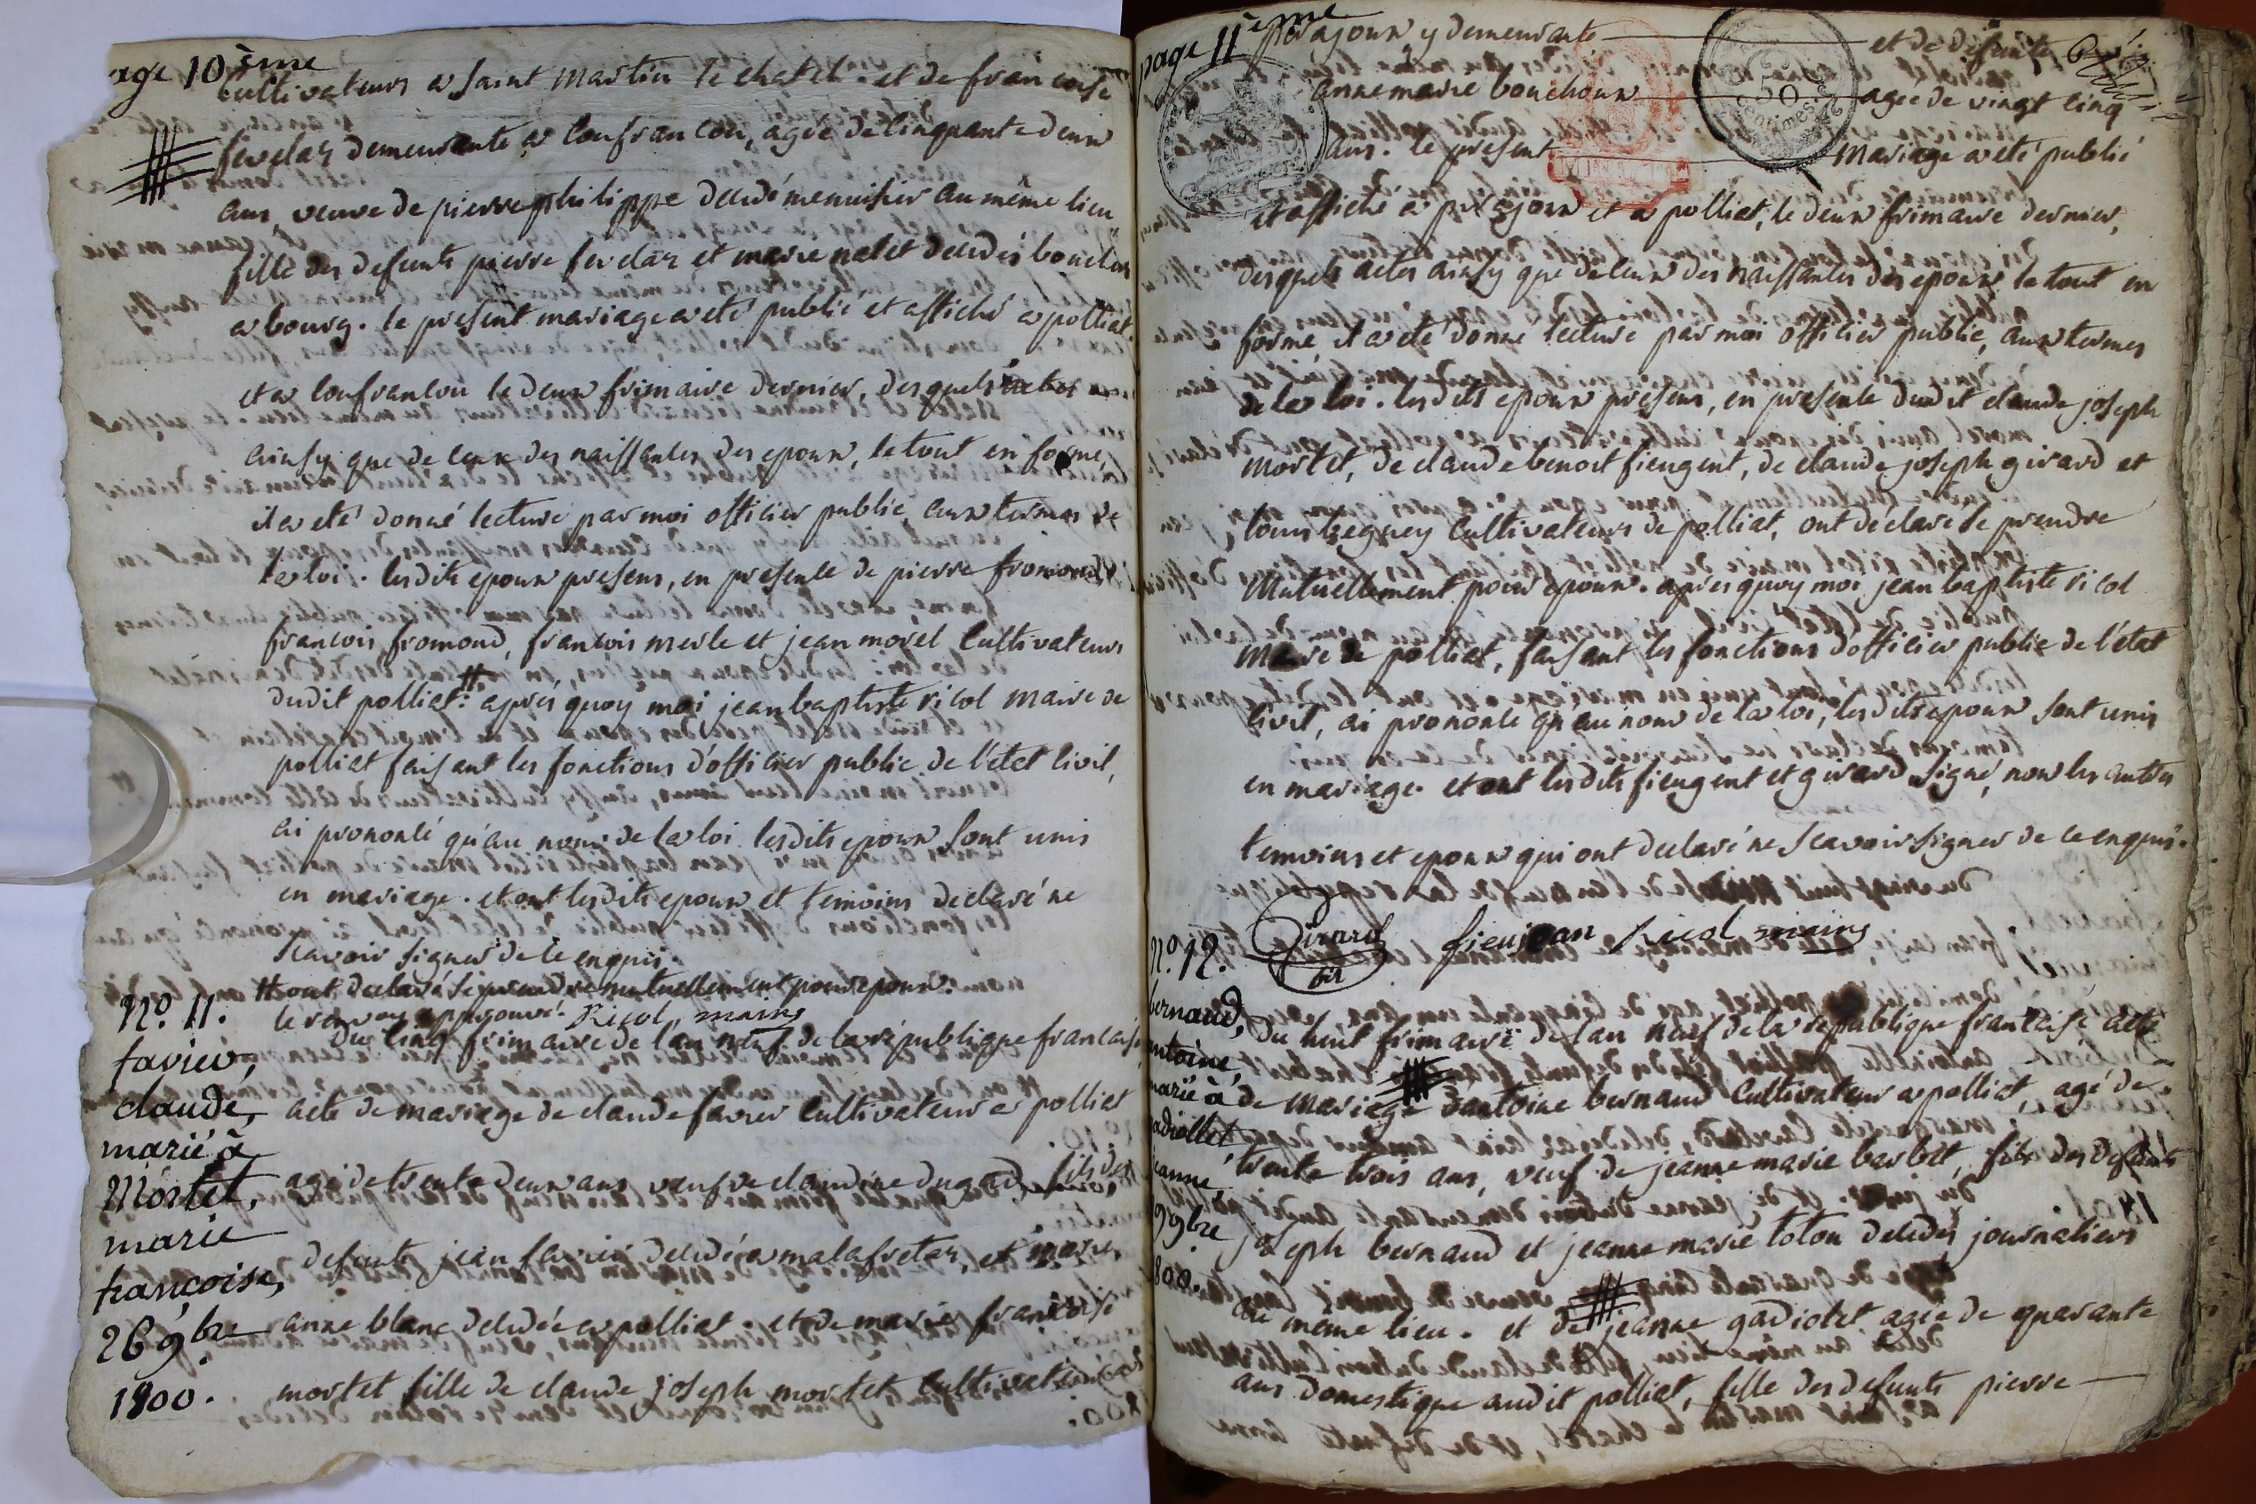 age 10ème
cultivateurs a saint martin le chatel. et de francoise
fevelas demeurante a confrancon, agée de cinquante deux
ans, veuve de pierre philippe decedé menuisier au même lieu
fille des defunts pierre fevelas et marie nalet decedés bouclos
a bourg. le present mariage a été publié et affiché a polliat
et a confrancon le deux frimaire dernier, desquels actes
ainsy que de ceux des naissances des epoux, le tout en forme,
il a été donné lecture par moi officier public, aux termes de
la loi. lesdits epoux presens, en presence de pierre fromond,
francois fromond, francois merle et jean morel cultivateurs
dudit polliat. # après quoy moi jean baptiste ricol maire de
polliat faisant les fonctions d'officier public de l'état civil,
ai prononcé qu'au nom de la loi lesdits epoux sont unis
en mariage. et ont lesdits epoux et temoins declaré ne
scavoir signer de ce enquis.
# ont declaré se prendre mutuellement pour epoux.
le renvoy approuvé. Ricol, maire
N.º 11.
favier,
claude,
marié à
Mortet,
marie
françoise,
26 9bre
1800.
Du cinq frimaire de l'an neuf de la république francaise,
acte de mariage de claude favier cultivateur a polliat
agé de trente deux ans veuf de claudine dugad, fils des
defunts jean favier decedé a malafretaz, et marie
anne blanc decedée a polliat. et de marie francoise
mortet fille de claude joseph mortet cultivateur
page 11ème
prajoux y demeurante et de defunte
anne marie bouchoux agée de vingt cinq
50
centimes
ans. le present mariage a été publié
et affiché a prajoux et a polliat, le deux frimaire dernier,
desquels actes ainsy que de ceux des naissances des epoux, le tout en
forme, il a été donné lecture par moi officier public, aux termes
de la loi. lesdits epoux presens, en presence dudit claude joseph
mortet, de claude benoit fieugent, de claude joseph girard et
louis cultivateurs de polliat, ont declaré se prendre
mutuellement pour epoux. après quoy moi jean baptiste ricol
maire de polliat, faisant les fonctions d'officier public de l'état
civil, ai prononcé qu'au nom de la loi, lesdits epoux sont unis
en mariage. et ont lesdits fieugent et girard signé, non les autres
temoins et epoux qui ont declaré ne scavoir signer de ce enquis.
Girard fieujean Ricol maire
N.º 12.
bernaud,
antoine,
marié à
gadiollet,
jeanne,
9bre
1800.
Du huit frimaire de l'an neuf de la republique francaise acte
de mariage d'antoine bernaud cultivateur a polliat, agé de
trente trois ans, veuf de jeanne marie barbet, fils des defunts
joseph bernaud et jeanne marie toton decedés journaliers
au même lieu. et de jeanne gadiolet agée de quarante
ans domestique audit polliat, fille des defunts pierre